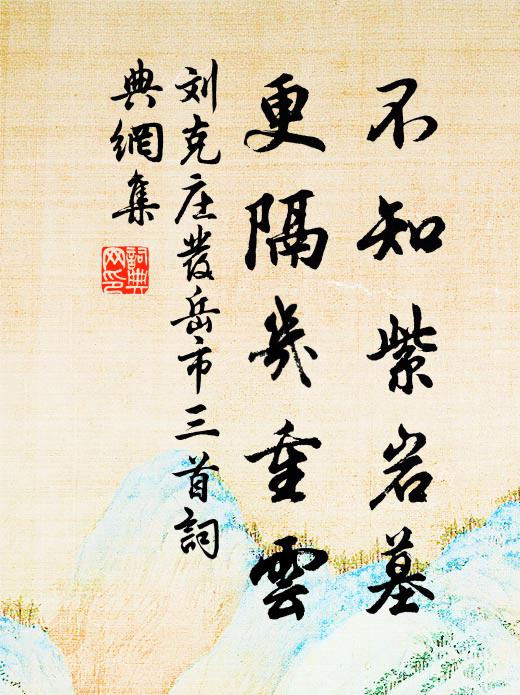 不知紫岩墓
更隔几重雲
刘克庄發岳市三首詞
典網集
詞典
网印